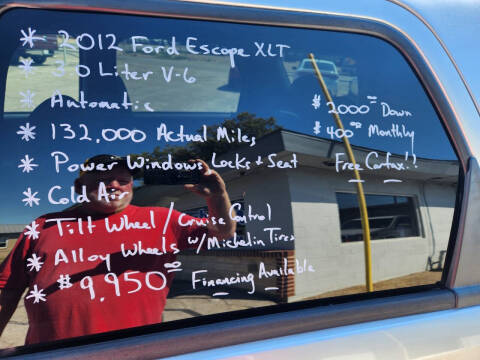 * 2012 Ford Escape XLT
* 3.0 Liter V-6
* Automatic
* 132,000 Actual Miles
* Power Windows Locks & Seat
* Cold Air
* Tilt Wheel / Cruise Control
* Alloy Wheels w/ Michelin Tires
* $9,950.00 Financing Available
$2000.00 Down
$400.00 Monthly
Free Carfax!!